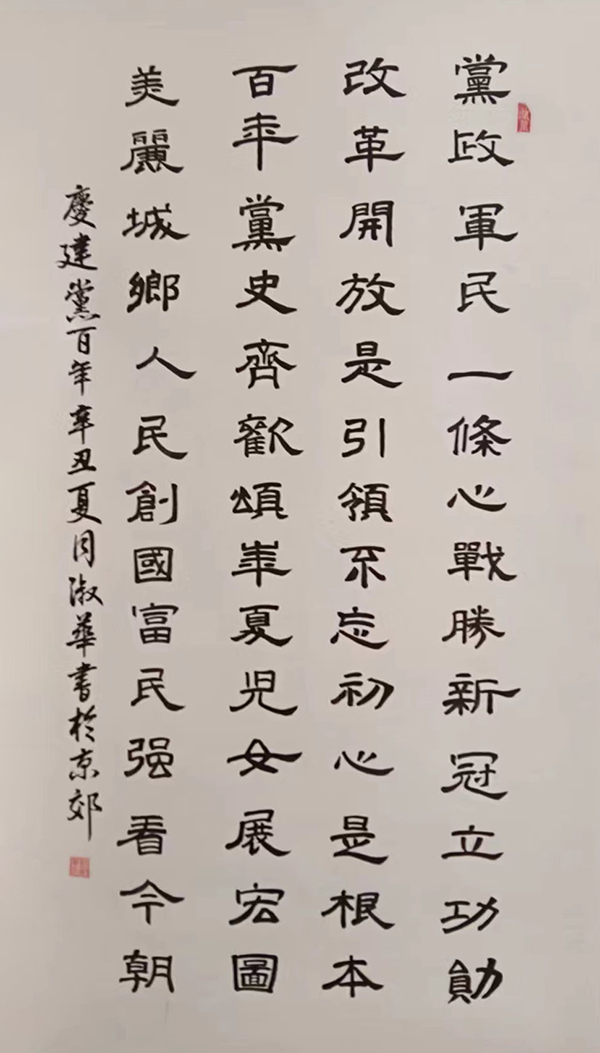 黨政軍民一條心戰勝新冠立功勛
改革開放是引領不忘初心是根本
百年黨史齊歡頌華夏児女展宏圖
美麗城鄉人民創國富民强看今朝
慶建黨百年辛丑夏周淑華書於京郊